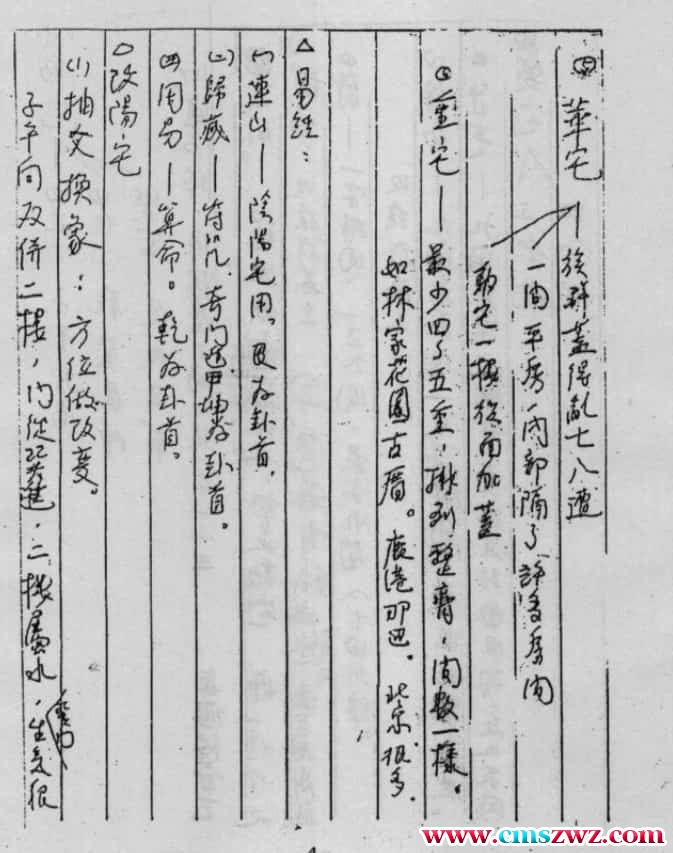 ㈣華宅—族群蓋得亂七八遭
一間平房一内部隔了許多房間
動宅一樓後面加蓋
㈤重宅—最少四了五重，排列整齊，间數一樣。
如林家花園古厝。鹿港那边。北京很多.
△易经：
㈠連山—陰陽宅用。艮为卦首.
㈡歸藏—符咒.奇门遁甲坤为卦首。
㈢周易—算命。乾为卦首。
△改陽宅
⑴抽爻换象：方位做改变。
子午向双併二楼，门從巽進，二楼屬水，生氣很
www.cmszwz.com